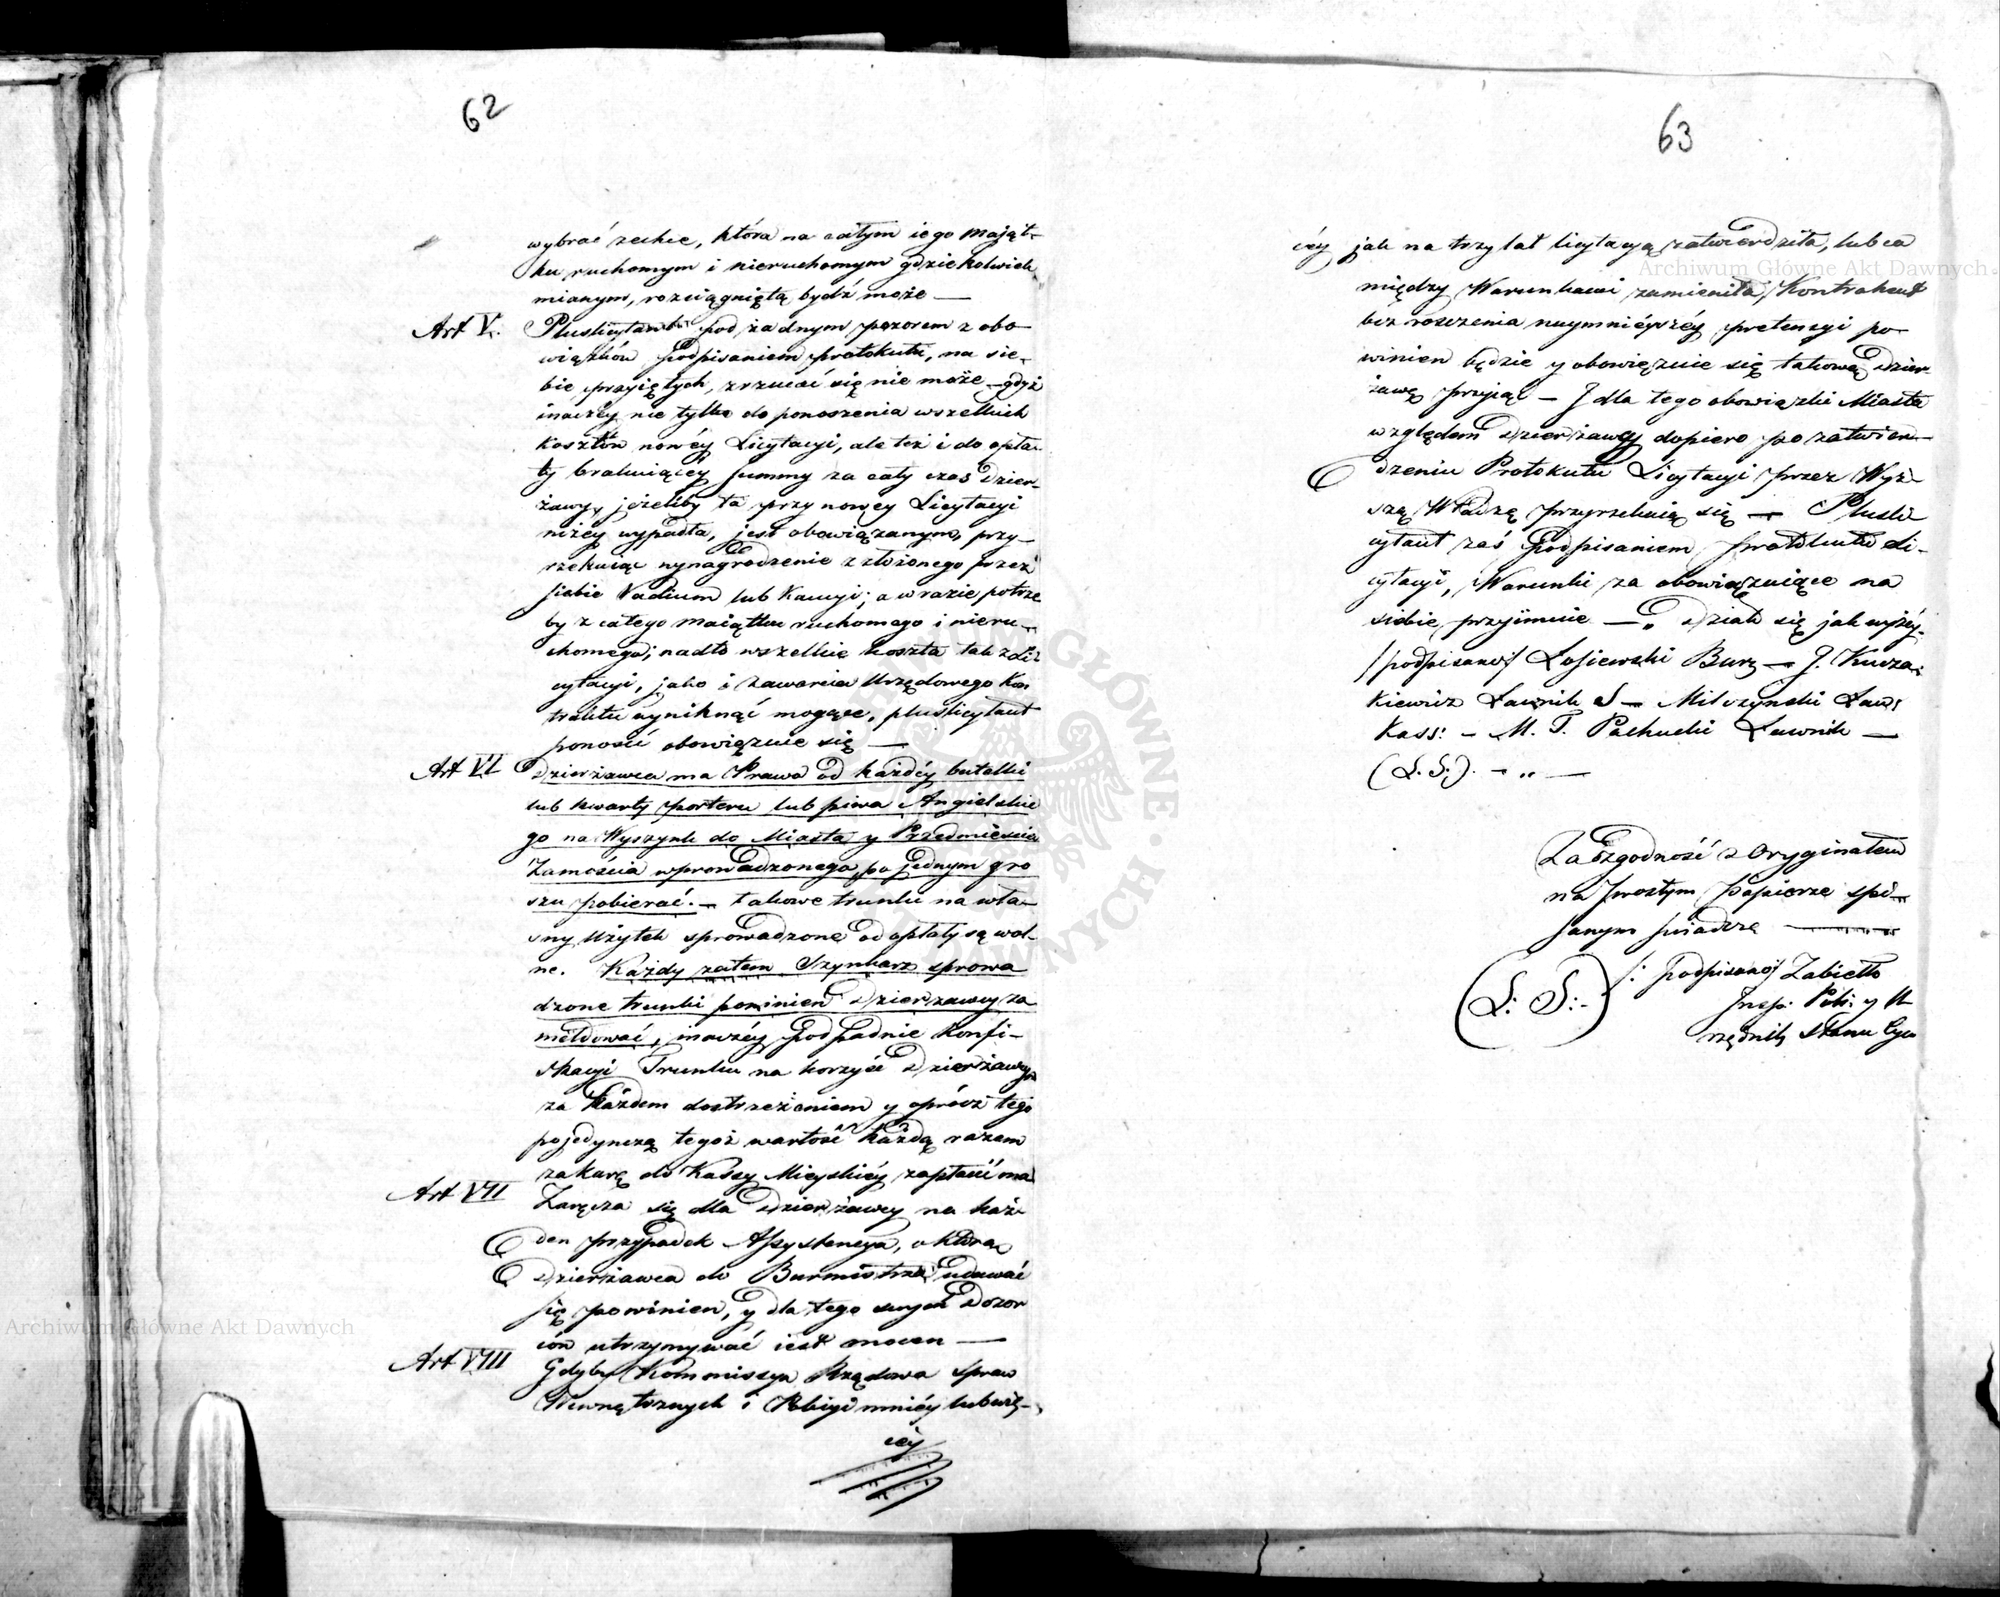 62
wybrać zechce, która na całym iego mająt-
ku ruchomym i nieruchomym gdziekolwiek
mianym, rozciągniętą bydź może —
Art V. Pluslicytant pod żadnym pozorem z obo-
wiązków podpisaniem protokułu, na sie-
bie przyiętych, zrzucać się nie może — gdyż
inaczéy nie tylko do ponoszenia wszelkich
kosztów nowéy Licytacyi, ale też i do opła-
ty brakuiącéy summy za cały czas dzier-
żawy, jeżeliby ta przy nowéy Licytacyi
niżéy wypadła, jest obowiązanym, przy-
rzekaiąc wynagrodzenie z złożonego przez
siebie Vadium lub Kaucyi; a w razie potrze
by z całego maiątku ruchomego i nieru-
chomego; nadto wszelkie koszta tak z Li-
cytacyi, jako i zawarcia Urzędowego Kon
traktu wyniknąć mogące, pluslicytant
ponosić obowiązuie się —
Art VI Dzierżawca ma Prawo od każdéy butelki
lub kwarty porteru lub piwa Angielskie
go na Wyszynk do Miasta y Przedmieścia
Zamościa wprowadzonego, po jednym gro
szu pobierać. — takowe trunki na wła-
sny użytek sprowadzone od opłaty są wol-
ne. Każdy zatem Szynkarz sprowa
dzone trunki powinien Dzierzawcy za
meldować, inaczéy podpadnie konfi-
skacyi Trunku na korzyść Dzierżawcy
za każdem dostrzeżeniem y oprócz tego
pojedynczą tegoż wartość każdą razem
za karę do Kassy Mieyskiéy zapłacić ma
Art VII Zaręcza się dla Dzierżawcy na każ-
den przypadek Assystencya, o którą
Dzierżawca do Burmistrza udawać
się powinien, y dla tego swych Dozor
ców utrzymywać iest mocen —
Art VIII Gdyby Kommissya Rządowa Spraw
Wewnętrznych i Policyi mniéy lub wię-
céy
63
céy jak na trzy lat licytacyą zatwierdziła, lub co
między Warunkami zamieniła, Kontrahent
bez roszczenia naymniéyszéy pretensyi po-
winien będzie y obowiązuie się takową dzier
żawę przyjąć — I dla tego obowiązki Miasta
względem dzierżawcy dopiero po zatwier-
dzeniu Protokułu Licytacyi przez Wyż-
szą Władzę przyrzekaią się — Plusli
cytant zaś podpisaniem protokułu Li-
cytacyi, Warunki za obowiązuiące na
siebie przyimuie — „ Działo się jak wyżéy.
/podpisano/ Łosiewski Burz — J. Kucza-
kiewicz Ławnik S — Milczynski Ław:
Kass: — M. T. Pachucki Ławnik —
(L. S:). — „ —
Za zgodność z Oryginałem
na prostym papierze spi-
sanym świadczę —
(L: S:-) /: podpisano/ Zabiełło
Insp: Poli: y U-
rzędnik Stanu Cyw
Archiwum Główne Akt Dawnych
Archiwum Główne Akt Dawnych